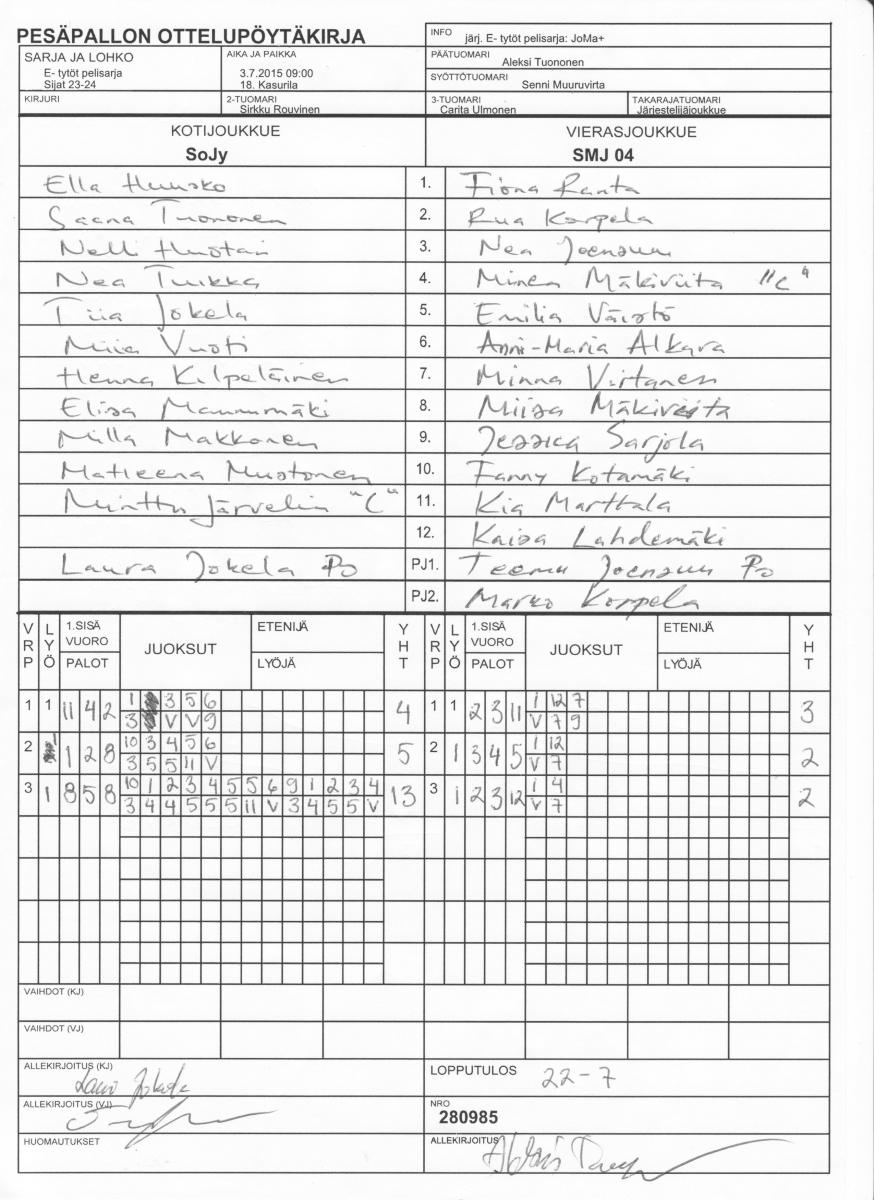 PESÄPALLON OTTELUPÖYTÄKIRJA
INFO järj. E- tytöt pelisarja: JoMa+
SARJA JA LOHKO
E- tytöt pelisarja
Sijat 23-24
AIKA JA PAIKKA
3.7.2015 09:00
18. Kasurila
PÄÄTUOMARI Aleksi Tuononen
SYÖTTÖTUOMARI Senni Muuruvirta
KIRJURI
2-TUOMARI
Sirkku Rouvinen
3-TUOMARI
Carita Ulmonen
TAKARAJATUOMARI
Järjestelijäjoukkue
KOTIJOUKKUE VIERASJOUKKUE
SoJy SMJ 04
Ella Huusko 1. Fiona Ranta
Saana Tuononen 2. Rua Korpela
Nelli Huotari 3. Nea Joensuu
Nea Tuikka 4. Minea Mäkiviita "C"
Tiia Jokela 5. Emilia Väistö
Miia Vuoti 6. Anni-Maria Alkara
Henna Kilpeläinen 7. Minna Virtanen
Elisa Mannmäki 8. Miisa Mäkiviita
Milla Makkonen 9. Jessica Sarjola
Matleena Mustonen 10. Fanny Kotamäki
Minttu Järvelin "C" 11. Kia Marttala
12. Kaisa Lahdemäki
Laura Jokela PJ1. Teemu Joensuu
PJ2. Marko Korpela
VRP LYÖ 1.SISÄ VUORO PALOT JUOKSUT ETENIJÄ LYÖJÄ YHT VRP LYÖ 1.SISÄ VUORO PALOT JUOKSUT ETENIJÄ LYÖJÄ YHT
1 1 11 4 2 1 3 5 6 4 1 1 2 3 11 1 12 7 3
3 V V 9 V 7 9
2 1 2 8 10 3 4 5 6 5 2 1 3 4 5 1 12 2
3 5 5 11 V V 7
3 1 8 5 8 10 1 2 3 4 5 5 6 9 1 2 3 4 13 3 1 2 3 12 1 4 2
3 4 4 5 5 5 11 V 3 4 5 5 V V 7
VAIHDOT (KJ)
VAIHDOT (VJ)
ALLEKIRJOITUS (KJ) LOPPUTULOS 22-7
ALLEKIRJOITUS (VJ) NRO
280985
HUOMAUTUKSET ALLEKIRJOITUS